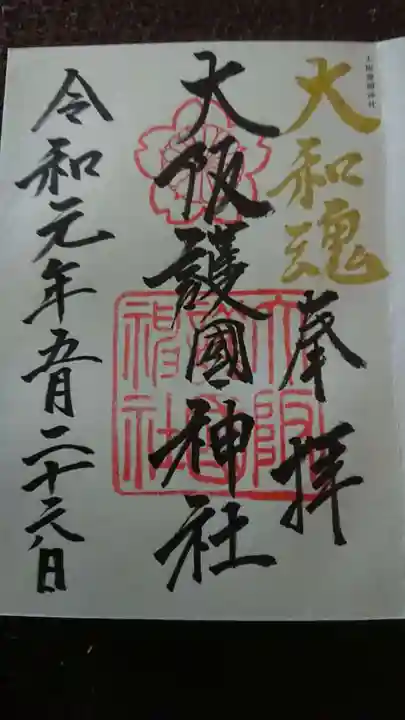 大阪護國神社
大和魂
奉拝
大阪護國神社
大阪護國神社
令和元年五月二十六日